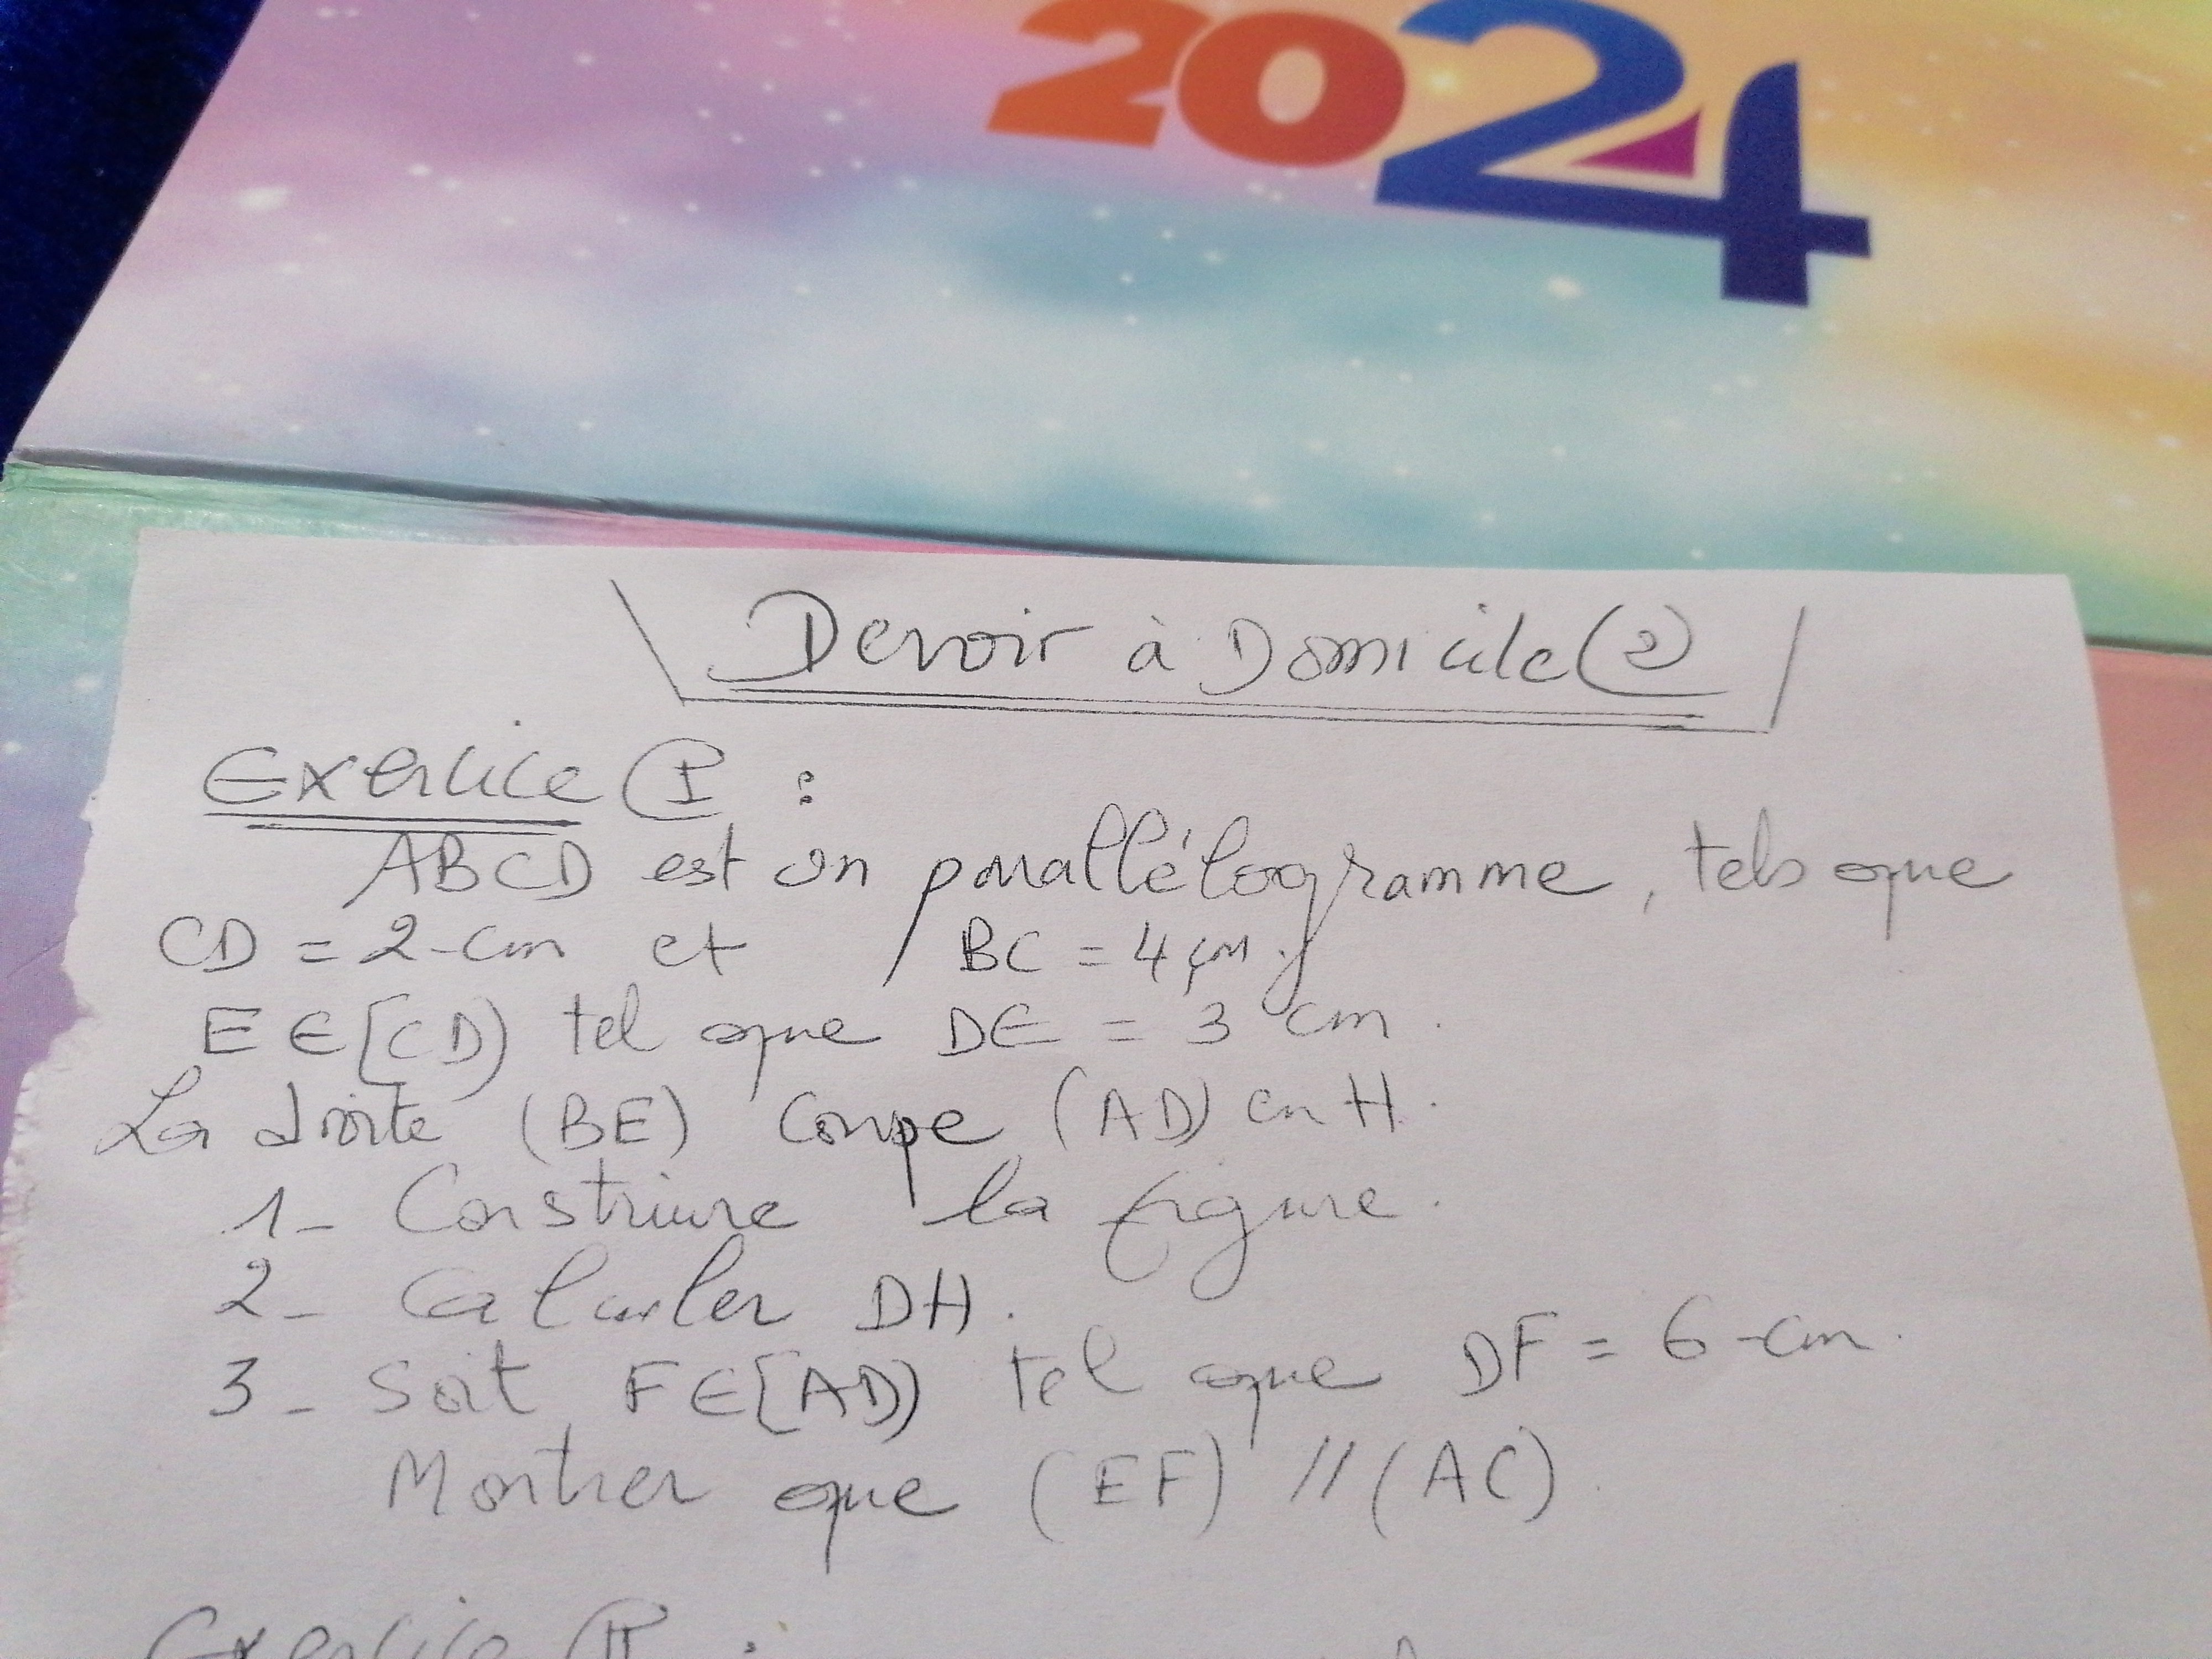 2024
Devoir à Domicile (2)
Exercice (I) :
ABCD est un parallélogramme, tels que
CD = 2 cm et BC = 4 cm.
E ∈ [CD) tel que DE = 3 cm.
La droite (BE) coupe (AD) en H.
1- Construire la figure.
2- Calculer DH.
3- Soit F ∈ [AD) tel que DF = 6 cm.
Montrer que (EF) // (AC).
Exercice (II) :